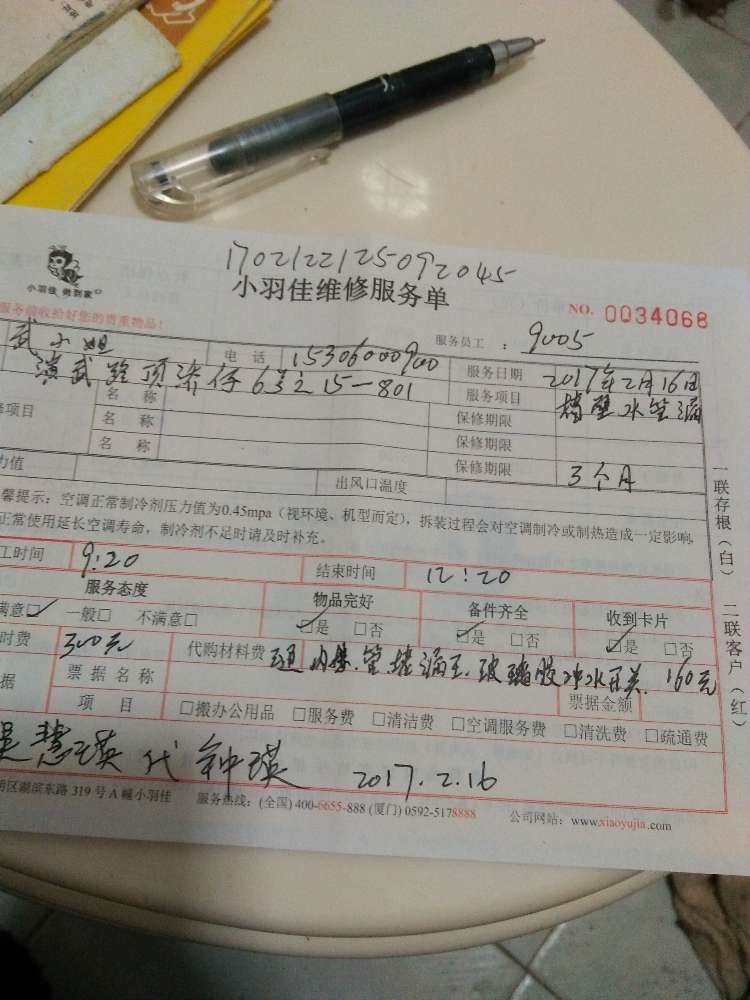 1702122125092045
小羽佳 佣到家
小羽佳维修服务单
NO. 0034068
服务前收拾好您的贵重物品!
服务员工 : 9005
武小姐 电话 15306000900 服务日期 2017年2月16日
演武路顶澳仔6号之15-801 服务项目 墙壁水管漏
项目 名称 保修期限
名称 保修期限
名称 保修期限 3个月
力值 出风口温度
馨提示:空调正常制冷剂压力值为0.45mpa(视环境、机型而定),拆装过程会对空调制冷或制热造成一定影响
正常使用延长空调寿命,制冷剂不足时请及时补充。
工时间 9:20 结束时间 12:20
服务态度 物品完好 备件齐全 收到卡片
满意☑ 一般□ 不满意□ ☑是 □否 ☑是 □否 ☑是 □否
时费 300元 代购材料费 内丝.管堵漏王.玻璃胶冲水开关. 160元
据 票据名称 票据金额
项目 □搬办公用品 □服务费 □清洁费 □空调服务费 □清洗费 □疏通费
慧瑛代 钟瑛 2017.2.16
明区湖滨东路 319 号 A 幢小羽佳 服务热线:(全国) 400-6655-888 (厦门) 0592-5178888 公司网站:www.xiaoyujia.com
一联存根(白) 二联客户(红)